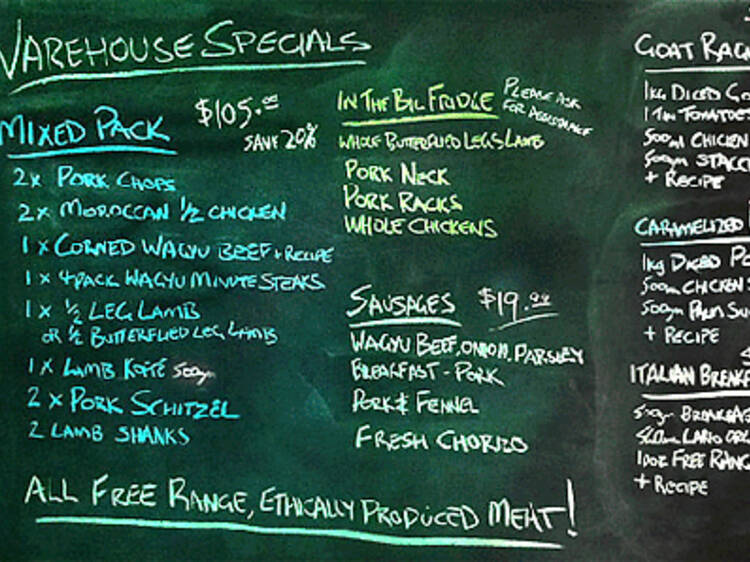 WAREHOUSE SPECIALS
MIXED PACK $105.00
SAVE 20%
2x PORK CHOPS
2x MOROCCAN 1/2 CHICKEN
1 x CORNED WAGYU BEEF + RECIPE
1 x 4 PACK WAGYU MINUTE STEAKS
1 x 1/2 LEG LAMB
OR 1/2 BUTTERFLIED LEG LAMB
1 x LAMB KOFTE 500gm
2 x PORK SCHITZEL
2 LAMB SHANKS
IN THE BIG FRIDGE
PLEASE ASK
FOR ASSISTANCE
WHOLE BUTTERFLIED LEGS LAMB
PORK NECK
PORK RACKS
WHOLE CHICKENS
SAUSAGES $19.99
WAGYU BEEF, ONION, PARSLEY
BREAKFAST - PORK
PORK & FENNEL
FRESH CHORIZO
GOAT
1kg DICED
TOMATO
500ml CHICKEN
500gm
+ RECIPE
CARAMELIZED
1kg DICED
500ml CHICKEN
500gm PALM
+ RECIPE
ITALIAN
500gm
LARD
FREE RANG
+ RECIPE
ALL FREE RANGE, ETHICALLY PRODUCED MEAT!